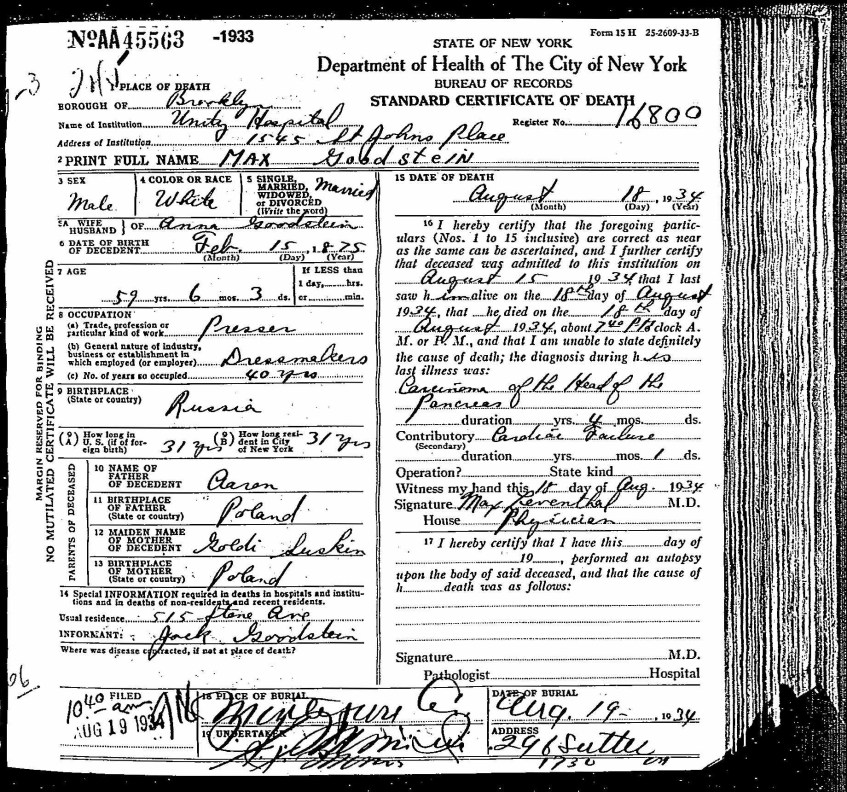 NºAA45563 -1933
Form 15 H 25-2609-33-B
STATE OF NEW YORK
Department of Health of The City of New York
BUREAU OF RECORDS
STANDARD CERTIFICATE OF DEATH
Register No. 16800
1 PLACE OF DEATH
BOROUGH OF Brooklyn
Name of Institution Unity Hospital
Address of Institution 1545 St Johns Place
2 PRINT FULL NAME MAX Goodstein
3 SEX Male
4 COLOR OR RACE White
5 SINGLE, MARRIED, WIDOWED, or DIVORCED (Write the word) Married
5A WIFE HUSBAND } OF Anna Goodstein
6 DATE OF BIRTH OF DECEDENT Feb 15, 1875
(Month) (Day) (Year)
7 AGE 59 yrs. 6 mos. 3 ds.
If LESS than 1 day, hrs. or min.
8 OCCUPATION
(a) Trade, profession or particular kind of work Presser
(b) General nature of industry, business or establishment in which employed (or employer) Dressmakers
(c) No. of years so occupied 40 yrs
9 BIRTHPLACE (State or country) Russia
(A) How long in U. S. (if of foreign birth) 31 yrs
(B) How long resident in City of New York 31 yrs
PARENTS OF DECEASED
10 NAME OF FATHER OF DECEDENT Aaron
11 BIRTHPLACE OF FATHER (State or country) Poland
12 MAIDEN NAME OF MOTHER OF DECEDENT Goldi Luskin
13 BIRTHPLACE OF MOTHER (State or country) Poland
14 Special INFORMATION required in deaths in hospitals and institutions and in deaths of non-residents and recent residents.
Usual residence 515 Stone Ave
INFORMANT: Jack Goodstein
Where was disease contracted, if not at place of death?
MARGIN RESERVED FOR BINDING
NO MUTILATED CERTIFICATE WILL BE RECEIVED
15 DATE OF DEATH
August 18, 1934
(Month) (Day) (Year)
16 I hereby certify that the foregoing particulars (Nos. 1 to 15 inclusive) are correct as near
as the same can be ascertained, and I further certify
that deceased was admitted to this institution on
August 15 1934 that I last
saw him alive on the 18th day of August
1934, that he died on the 18th day of
August 1934, about 7 40 P o'clock A.
M. or P. M., and that I am unable to state definitely
the cause of death; the diagnosis during his
last illness was:
Carcinoma of the Head of the
Pancreas
duration yrs. 4 mos. ds.
Contributory (Secondary) Cardiac Failure
duration yrs. mos. 1 ds.
Operation? State kind
Witness my hand this 18 day of Aug. 1934
Signature Max Leventhal M.D.
House Physician
17 I hereby certify that I have this day of
19, performed an autopsy
upon the body of said deceased, and that the cause of
h death was as follows:
Signature M.D.
Pathologist Hospital
10 40 am FILED
AUG 19 1934
18 PLACE OF BURIAL
Montefiore Cem
DATE OF BURIAL
Aug. 19 1934
19 UNDERTAKER
ADDRESS
296 Sutter
1730